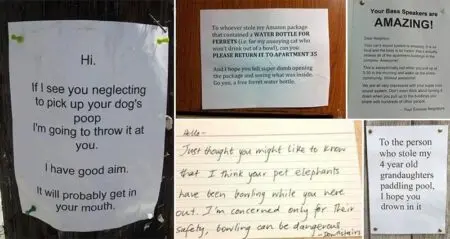 Hi.
If I see you neglecting
to pick up your dog's
poop
I'm going to throw it at
you.
I have good aim.
It will probably get in
your mouth.
To whoever stole my Amazon package
that contained a WATER BOTTLE FOR
FERRETS (i.e. for my annoying cat who
won't drink out of a bowl), can you
PLEASE RETURN IT TO APARTMENT 35
And I hope you felt super dumb opening
the package and seeing what was inside.
Go you, a free ferret water bottle.
Your Bass Speakers are
AMAZING!
Dear Neighbor,
Hello-
Just thought you might like to know
that I think your pet elephants
have been bowling while you were
out. I'm concerned only for their
safety, bowling can be dangerous.
-Downstairs
To the person
who stole my
4 year old
grandaughters
paddling pool,
I hope you
drown in it